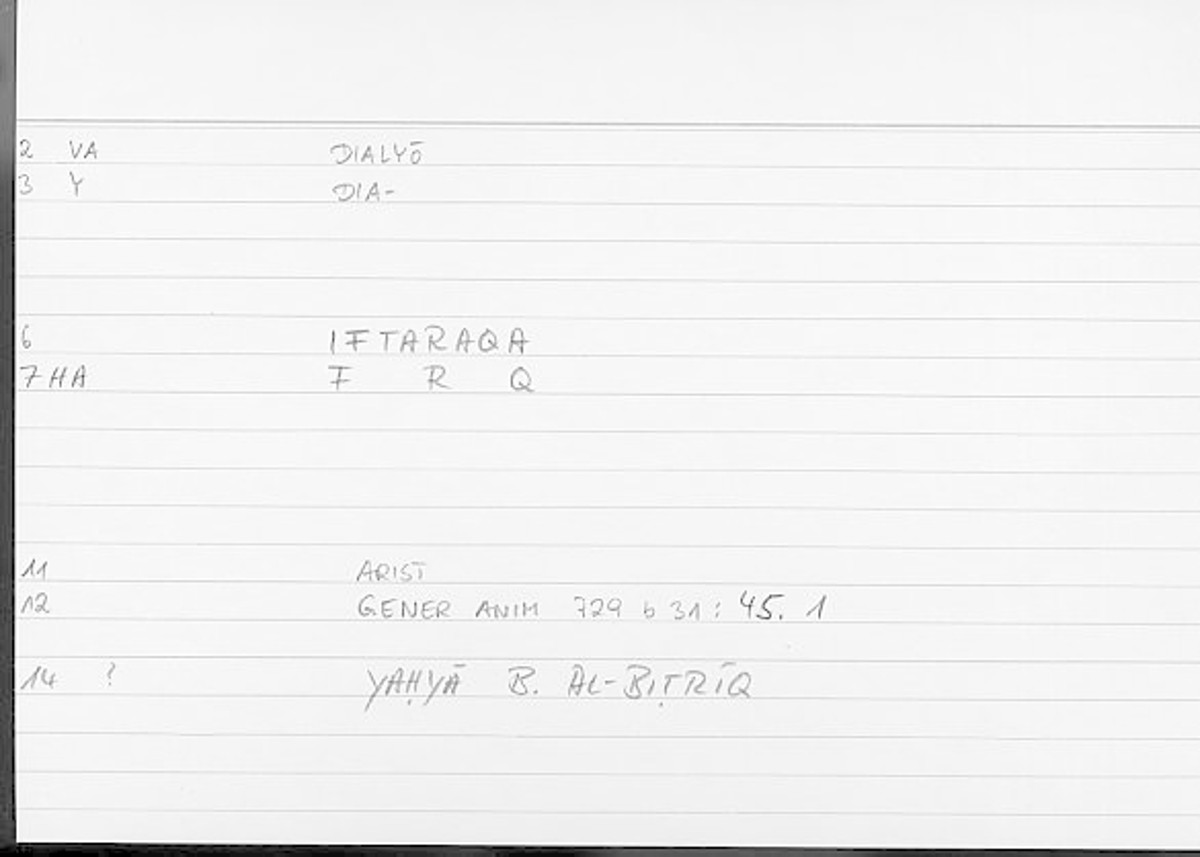 2 VA DIALYŌ
3 Y DIA-
6 IFTARAQA
7 HA F R Q
11 ARIST
12 GENER ANIM 729 b 31 : 45. 1
14 ? YAḤYĀ B. AL-BIṬRĪQ